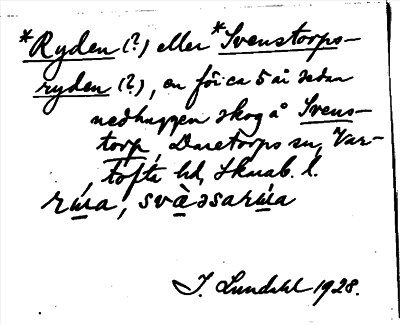 *Ryden (?) eller *Svenstorps-
ryden (?), en för ca 5 år sedan
nedhuggen skog å Svens-
torp, Daretorps sn, Var-
tofta hd, Skarab. l.
J. Lundahl 1928.